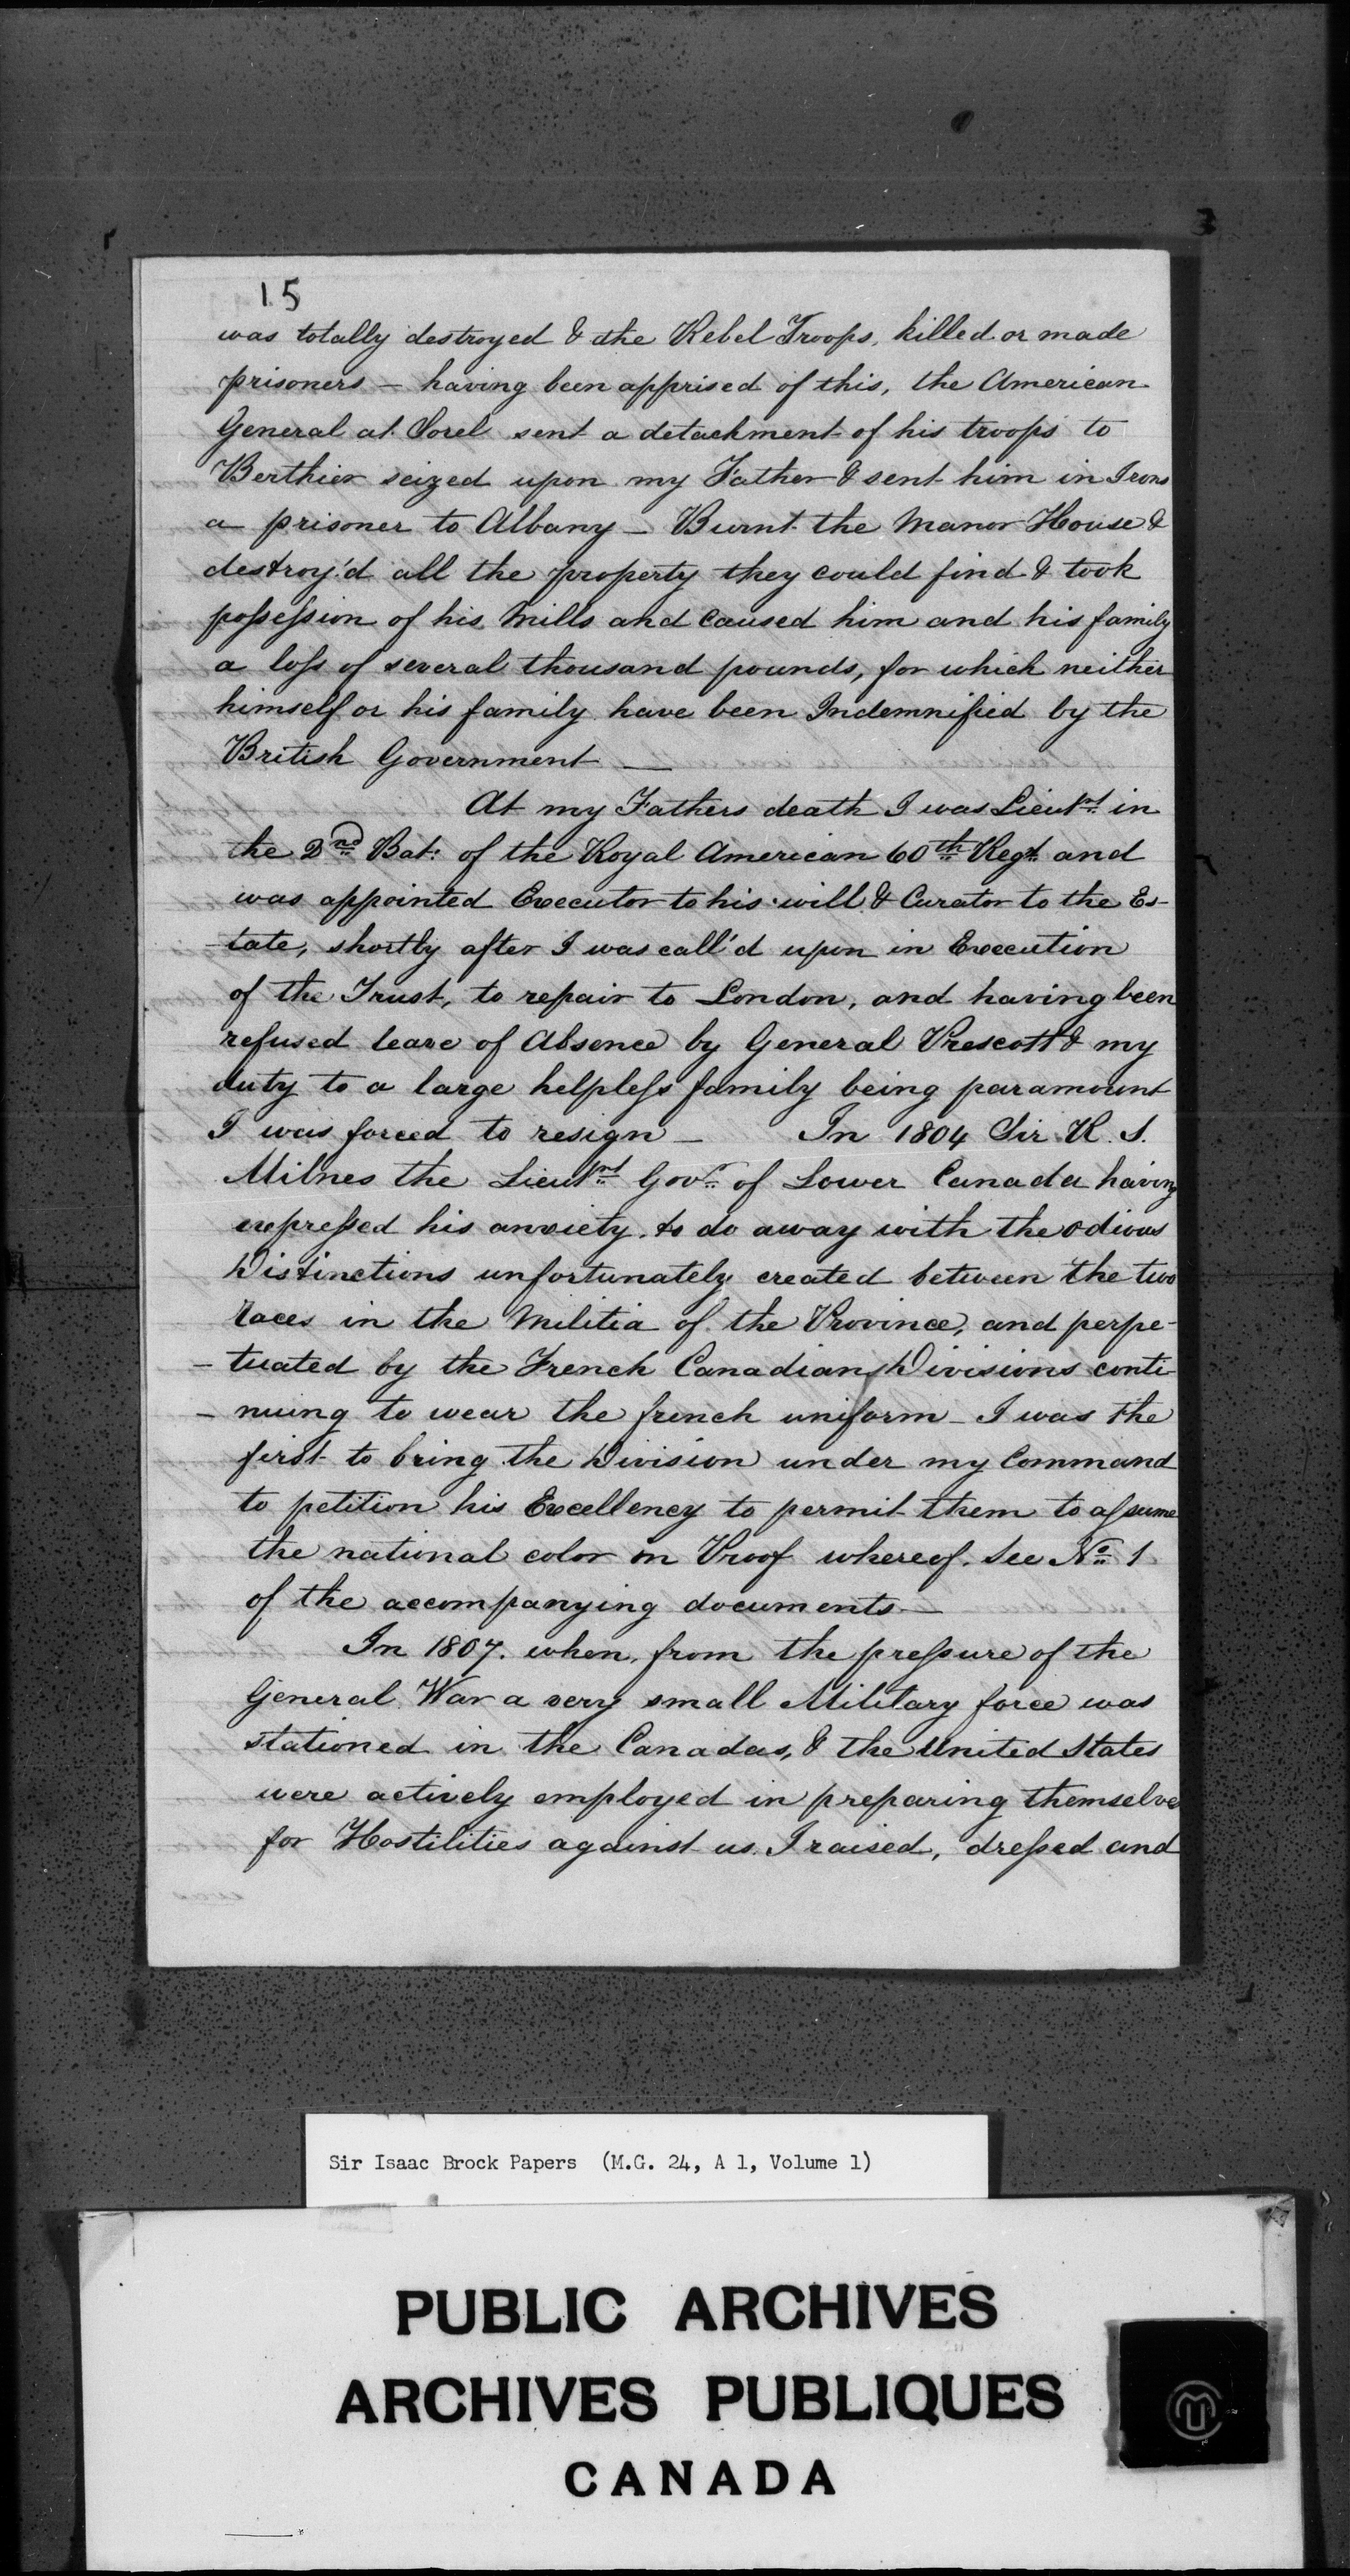 15
was totally destroyed & the Rebel Troops, killed or made
prisoners – having been apprised of this, the American
General at Sorel sent a detachment of his troops to
Berthier seized upon my Father & sent him in Irons
a prisoner to Albany – Burnt the Manor House &
destroy'd all the property they could find & took
possession of his Mills and caused him and his family
a loss of several thousand pounds, for which neither
himself or his family have been Indemnified by the
British Government —
At my Fathers death I was Lieutnt in
the 2nd Bat: of the Royal American 60th Regt and
was appointed Executor to his will & Curator to the Es-
tate, shortly after I was call'd upon in Execution
of the Trust, to repair to London, and having been
refused leave of Absence by General Prescott & my
duty to a large helpless family being paramount
I was forced to resign – In 1804 Sir R. S.
Milnes the Lieutnt Govr of Lower Canada having
expressed his anxiety, to do away with the odious
Distinctions unfortunately created between the two
races in the Militia of the Province, and perpe-
-tuated by the French Canadian Divisions conti-
-nuing to wear the french uniform – I was the
first to bring the Division under my Command
to petition his Excellency to permit them to assume
the national color in Proof whereof. See No 1
of the accompanying documents —
In 1807. when, from the pressure of the
General War a very small Military force was
stationed in the Canadas, & the United States
were actively employed in preparing themselves
for Hostilities against us. I raised, dressed and
Sir Isaac Brock Papers (M.G. 24, A 1, Volume 1)
PUBLIC ARCHIVES
ARCHIVES PUBLIQUES
CANADA